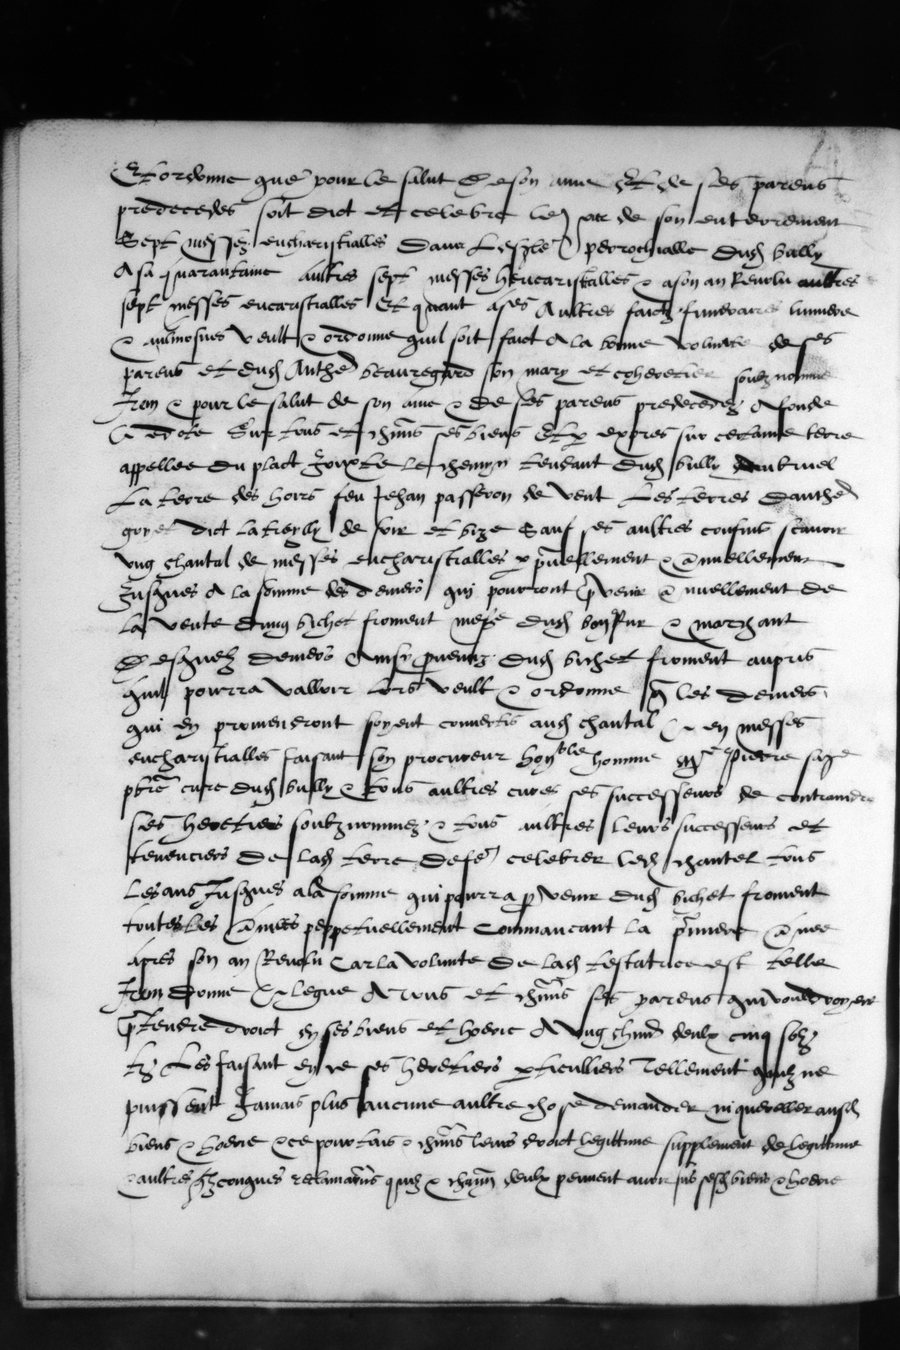 Et ordonne que pour le salut de son ame et de ses parens
predecedes soit dict et celebre le jour de son enterrement
Sept messes eucharistialles dans leglise perrochialle dud bully
A sa quarantaine aultres sept messes heucaristialles & a son an Revolu aultres
sept messes eucaristialles Et quant a ses Aultres faictz funeraires luminere
& aulmosnes veult & ordonne quil soit faict A la bonne volunte de ses
parens et dud Anthe beauregard son mary et coheretier soubz nomme
Item & pour le salut de son ame & de ses parens predecedez A fonde
& dote Sur tous et chuns ses biens Et expres sur certaine terre
appellee du plact Jouxte le chemyn tendant dud bully
La terre des hoirs feu Jehan passeron de vent Les terres danthe
goyet dict la de soir et bize Sauf ses aultres confins scavoir
ung chantal de messes eucharistialles & annuellement
Jusques A la somme des deniers qui pourront pvenir annuellement de
La vente dung bichet froment mesure dud bully pur & marchant
Desquelz deniers Ainsy provenuz dud bichet froment au pris
quil pourra valloir lors veult & ordonne q les deniers
qui en proviendront soyent convertis aud chantal & en messes
eucharistialles faisant son procureur honble homme mre Pierre
pbre cure dud bully & tous aultres cures ses successeurs de contraindre
ses heretiers soubznommez & tous aultres leurs successeurs et
tenenciers de lad terre defe celebrer led chantel tous
Les ans Jusques a la somme qui pourra pvenir dud bichet froment
toutes les annees perpetuellement Commancant la pmiere annee
apres son an Revolu Car la volunte de lad testatrice est telle
Item donne & legue A tous et chuns ses parens qui vouldroyent
ptendre droict en ses biens et hoerie A ung chun deulx cinq solz
tz Les faisant en ce ses heretiers pticulliers Tellement quilz ne
puissent Jamais plus aucune aultre chose demander ni quereller ausd
biens & hoerie & ce pour tous & chuns leurs droict legittime supplement de legittime
& aultres qzconques reclamaons quilz & chun deulx peuvent avoir sus sesd biens & hoerie